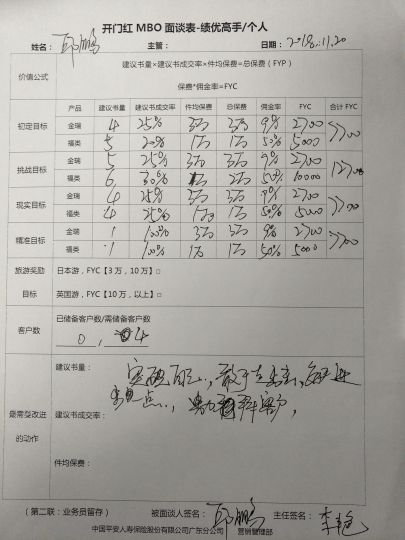 开门红 MBO 面谈表-绩优高手/个人
姓名： 邱鹏 主管： 日期：2018.11.20
价值公式 建议书量×建议书成交率×件均保费=总保费（FYP）
保费*佣金率=FYC
产品 建议书量 建议书成交率 件均保费 总保费 佣金率 FYC 合计 FYC
初定目标 金瑞 4 25% 3万 3万 9% 2700 7700
福类 5 20% 1万 1万 50% 5000
挑战目标 金瑞 5 25% 3万 3万 9% 2700 12700
福类 6 30% 1万 2万 50% 10000
现实目标 金瑞 4 25% 3万 3万 9% 2700 7700
福类 4 25% 1万 1万 50% 5000
精准目标 金瑞 1 100% 3万 3万 9% 2700 7700
福类 1 100% 1万 1万 50% 5000
旅游奖励 日本游，FYC【3 万，10 万】□
目标 英国游，FYC【10 万，以上】□
客户数 已储备客户数/需储备客户数
0 , 4
最需要改进的动作
建议书量： 突破自己，敢于
建议书成交率：
件均保费：
（第二联：业务员留存） 被面谈人签名： 邱鹏 主任签名： 李
中国平安人寿保险股份有限公司广东分公司 营销管理部